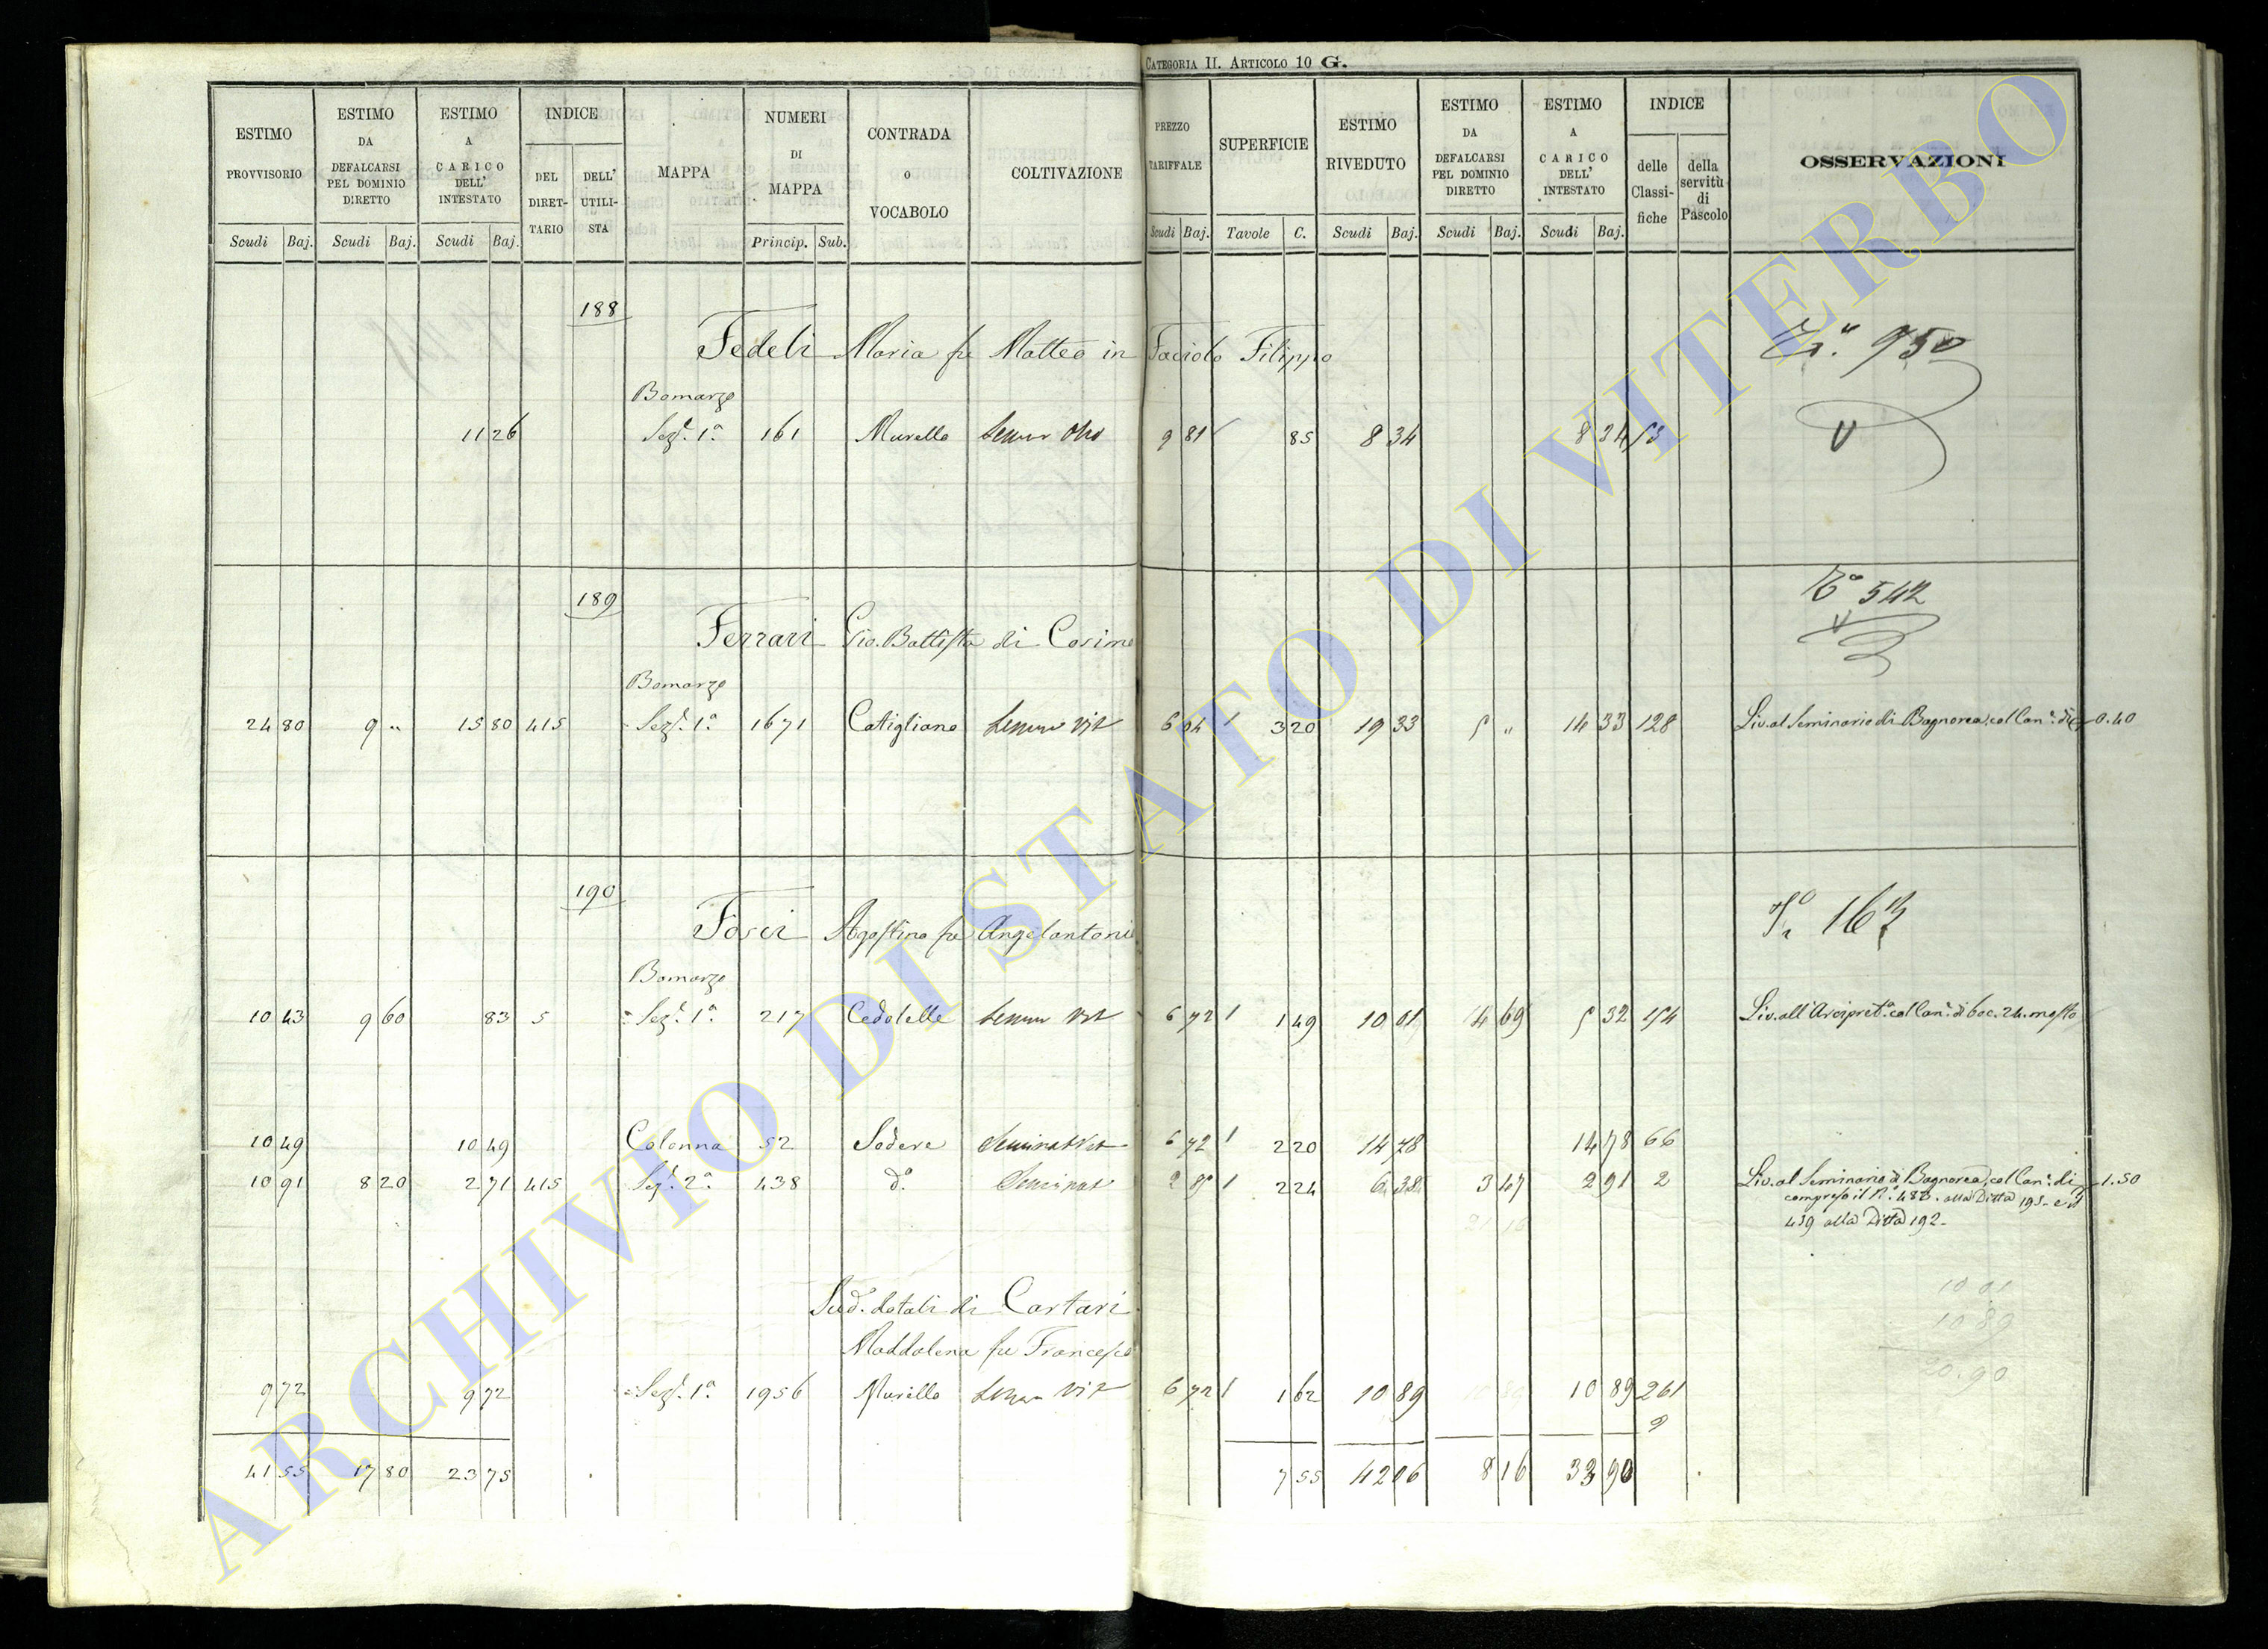 CATEGORIA II. ARTICOLO 10 G.
ESTIMO PROVVISORIO Scudi Baj.
ESTIMO DA DEFALCARSI PEL DOMINIO DIRETTO Scudi Baj.
ESTIMO A CARICO DELL' INTESTATO Scudi Baj.
INDICE DEL DIRETTARIO DELL' UTILISTA
MAPPA
NUMERI DI MAPPA Princip. Sub.
CONTRADA o VOCABOLO
COLTIVAZIONE
PREZZO TARIFFALE Scudi Baj.
SUPERFICIE Tavole C.
ESTIMO RIVEDUTO Scudi Baj.
ESTIMO DA DEFALCARSI PEL DOMINIO DIRETTO Scudi Baj.
ESTIMO A CARICO DELL' INTESTATO Scudi Baj.
INDICE delle Classifiche della servitù di Pascolo
OSSERVAZIONI
188
Fedeli Maria fu Matteo in Faciolo Filippo 950
Bomarzo
11 26 Sez.e 1a 161 Murella 9 81 85 8 34 8 34 53
189
542
Ferrari Gio. Battista di Cosimo
Bomarzo
24 80 9 " 15 80 415 Sez.e 1a 1671 Catigliano Semin Vit 6 04 3 20 19 33 5 " 14 33 128 Liv. al Seminario di Bagnorea, col Can.e di 0.40
190
Fosci Agostino fu Angelantonio
Bomarzo
10 43 9 60 83 5 Sez.e 1a 217 Cedolelle Semin Vit 6 72 1 49 10 01 4 69 5 32 154 Liv. all'Arcipret.a col Can.e di boc. 24. mosto
10 49 10 49 Colonna 52 Sodere Seminat Vit 6 72 2 20 14 78 14 78 66
10 91 8 20 2 71 415 Sez.e 2a 438 do. Seminat 2 24 6 38 3 47 2 91 2 Liv. al Seminario di Bagnorea, col Can.e di 1.50
compreso il N.o alla Ditta 195. e il
439 alla Ditta 192.
Sud. dotali di Cartari
10 01
10 89
20.90
Maddalena fu Francesco
9 72 9 72 Sez.e 1a 1956 Murella Semin Vit 6 72 1 62 10 89 10 89 261
41 55 17 80 23 75 7 55 42 06 8 16 33 90
ARCHIVIO DI STATO DI VITERBO